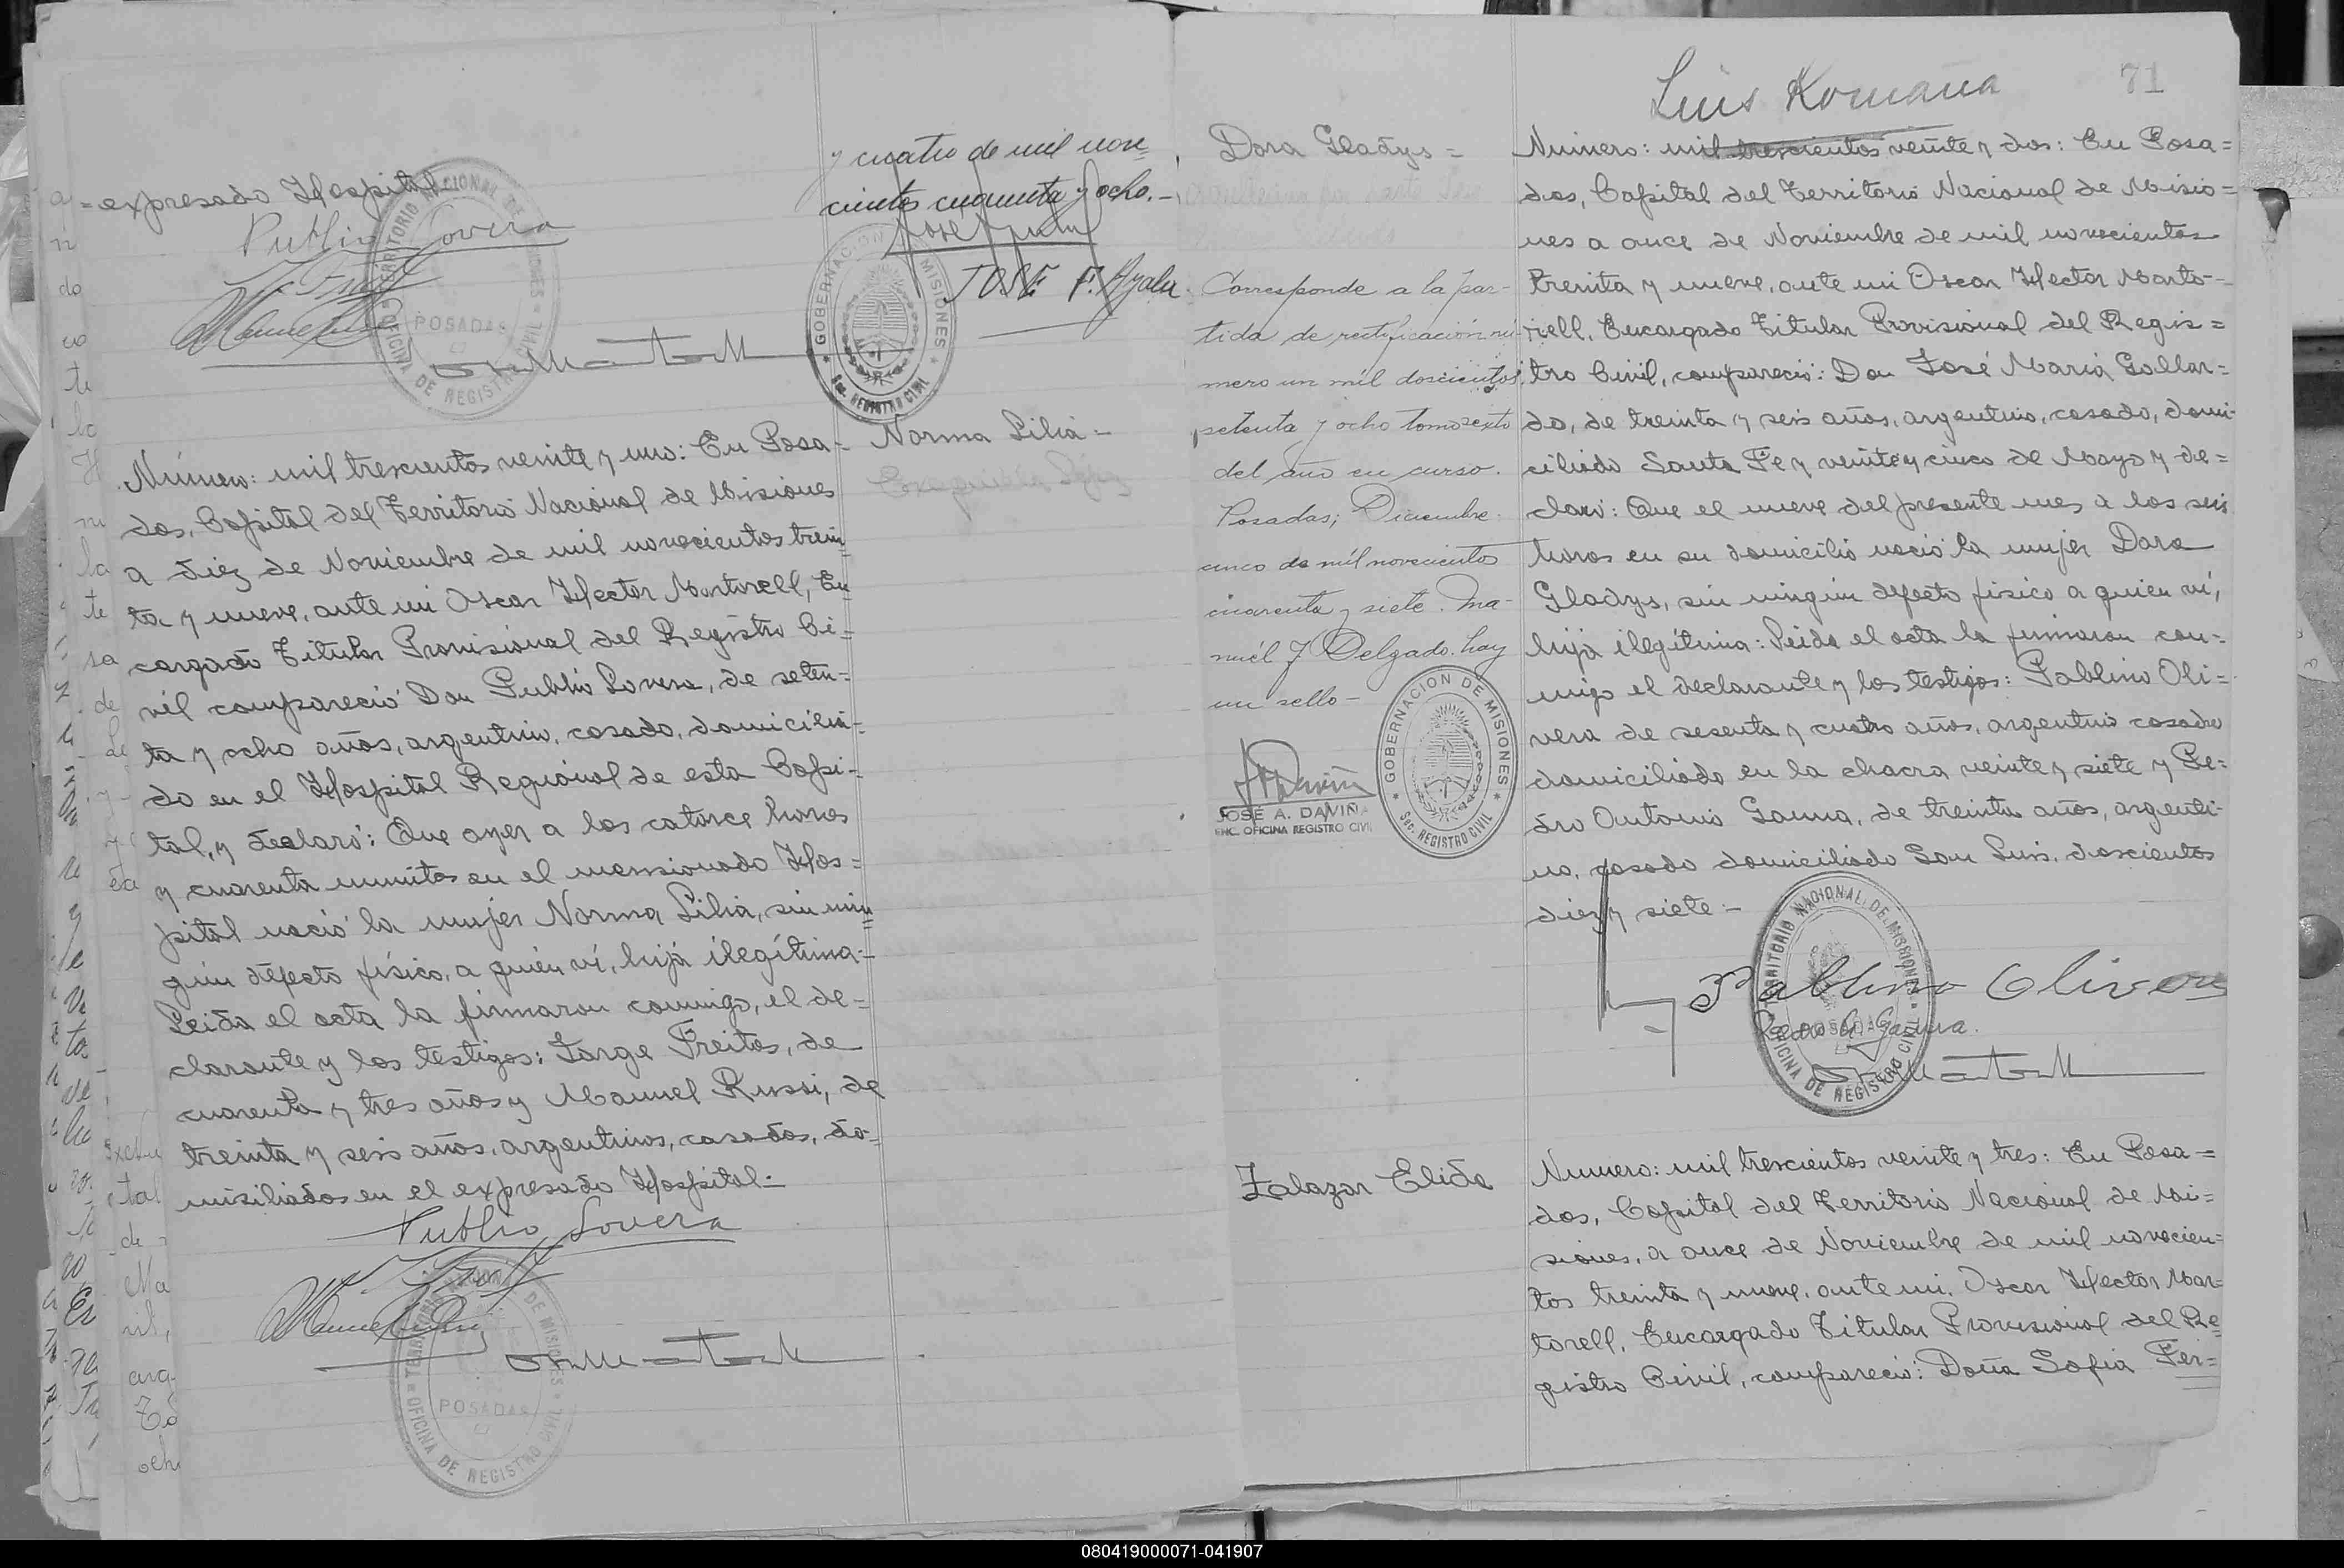 =expresado Hospital
Publio Lovera
TERRITORIO NACIONAL DE MISIONES
POSADAS
OFICINA DE REGISTRO CIVIL
y cuatro de mil nove=
cientos cincuenta y ocho.-
JOSE F. Ayala
GOBERNACION DE MISIONES
Sec. REGISTRO CIVIL
Norma Lilia =
Número: mil trescientos veinte y uno: En Posa-
das, Capital del Territorio Nacional de Misiones
a diez de Noviembre de mil novecientos trein=
ta y nueve, ante mi Oscar Hector Martorell, En
cargado Titular Provisional del Registro Ci=
vil compareció Don Publio Lovera, de seten=
ta y ocho años, argentino, casado, domicilia-
do en el Hospital Regional de esta Capi-
tal, y declaró: Que ayer a las catorce horas
y cuarenta minutos en el mensionado Hos=
pital nació la mujer Norma Lilia, sin nin
gún defecto físico, a quien ví, hija ilegítima-
Leida el acta la firmaron conmigo, el de=
clarante y los testigos: Jorge Freitas, de
cuarenta y tres años y Manuel Russi, de
treinta y seis años, argentinos, casados, do=
misiliados en el expresado Hospital.-
Publio Lovera
TERRITORIO NACIONAL DE MISIONES
POSADAS
OFICINA DE REGISTRO CIVIL
Luis Romaña
71
Dora Gladys =
Corresponde a la par-
tida de rectificación nú-
mero un mil doscientos
setenta y ocho tomo sexto
del año en curso.
Posadas; Diciembre
cinco de mil novecientos
cuarenta y siete. Ma-
nuel J Delgado. hay
un sello -
JOSÉ A. DAVIÑA
ENC. OFICINA REGISTRO CIVIL
GOBERNACION DE MISIONES
Sec. REGISTRO CIVIL
Número: mil trescientos veinte y dos: En Posa=
das, Capital del Territorio Nacional de Misio=
nes a once de Noviembre de mil novecientos
treinta y nueve, ante mi Oscar Hector Marto-
rell, Encargado Titular Provisional del Regis=
tro Civil, compareció: Don José María Gallar=
do, de treinta y seis años, argentino, casado, domi-
ciliado Santa Fe y veinte y cinco de Mayo y de=
claró: Que el nueve del presente mes a las seis
horas en su domicilio nació la mujer Dora
Gladys, sin ningún defecto físico a quien ví,
hija ilegítima: Leida el acta la firmaron con-
migo el declarante y los testigos: Pablino Oli=
vera de sesenta y cuatro años, argentino casado
domiciliado en la chacra veinte y siete y Pe-
dro Antonio Gauna, de treinta años, argenti-
no, casado domiciliado San Luis, doscientos
diez y siete.-
Pablino Olivera
Pedro A. Gauna.
TERRITORIO NACIONAL DE MISIONES
POSADAS
OFICINA DE REGISTRO CIVIL
Zalazar Elida
Número: mil trescientos veinte y tres: En Posa=
das, Capital del Territorio Nacional de Mi=
siones, a once de Noviembre de mil novecien=
tos treinta y nueve, ante mi, Oscar Hector Mar=
torell, Encargado Titular Provisional del Re=
gistro Civil, compareció: Doña Sofia Fer=
080419000071-041907